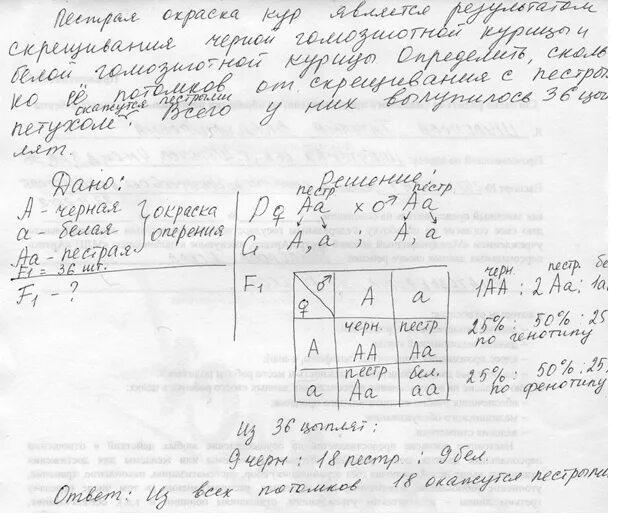 Пестрая окраска кур является результатом
скрещивания черной гомозиготной курицы и
белой гомозиготной курицы Определить, сколь
ко её потомков от скрещивания с пестрым
окажутся пестрыми
петухом. Всего у них вылупилось 36 цып
лят.
Дано:
A - черная
a - белая
Aa - пестрая
окраска
оперения
F1 = 36 шт.
F1 - ?
Решение:
пестр. пестр.
P ♀ Aa × ♂ Aa
G A, a ; A, a
F1
♂ ♀ A a
черн. пестр
A AA Aa
пестр бел.
a Aa aa
черн. пестр. бе
1AA : 2Aa : 1a
25% : 50% : 25
по генотипу
25% : 50% : 25
по фенотипу
Из 36 цыплят:
9 черн : 18 пестр. : 9 бел.
Ответ: Из всех потомков 18 окажутся пестрыми